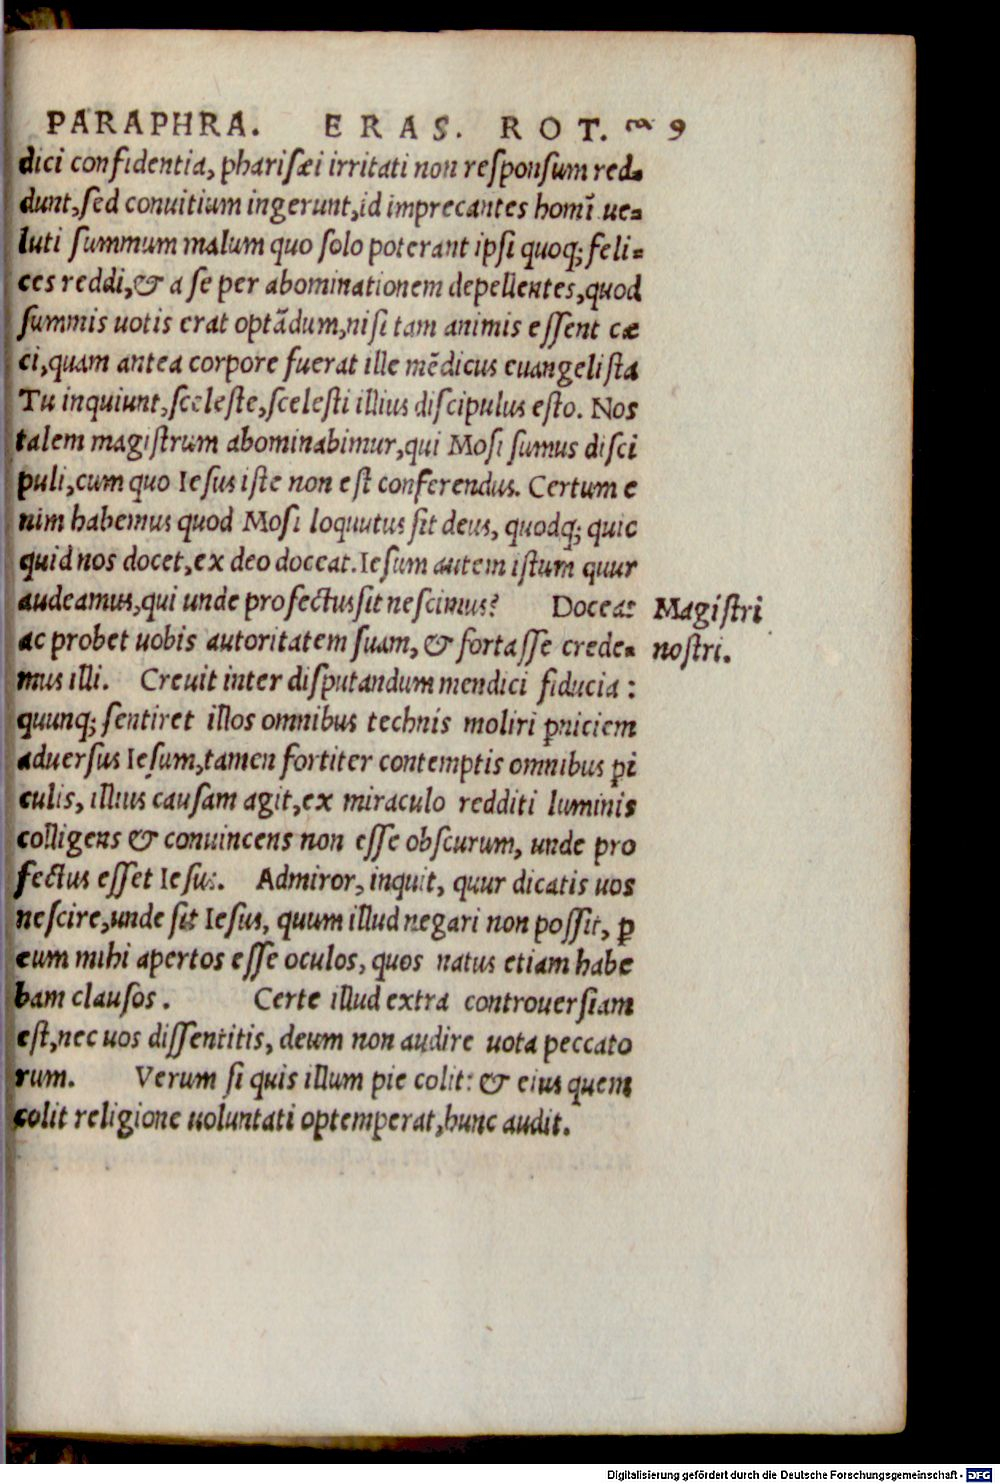 PARAPHRA. ERAS. ROT. 9
dici confidentia, pharisæi irritati non responsum red-
dunt, sed conuitium ingerunt, id imprecantes homĩ ue-
luti summum malum quo solo poterant ipsi quoq; feli-
ces reddi, & a se per abominationem depellentes, quod
summis uotis erat optãdum, nisi tam animis essent cæ
ci, quam antea corpore fuerat ille mẽdicus euangelista
Tu inquiunt, sceleste, scelesti illius discipulus esto. Nos
talem magistrum abominabimur, qui Mosi sumus disci
puli, cum quo Iesus iste non est conferendus. Certum e
nim habemus quod Mosi loquutus sit deus, quodq; quic
quid nos docet, ex deo doceat. Iesum autem istum quur
audeamus, qui unde profectus sit nescimus? Doceat
Magistri
ac probet uobis autoritatem suam, & fortasse crede-
nostri.
mus illi. Creuit inter disputandum mendici fiducia:
quunq; sentiret illos omnibus technis moliri ꝑniciem
aduersus Iesum, tamen fortiter contemptis omnibus ꝑi
culis, illius causam agit, ex miraculo redditi luminis
colligens & conuincens non esse obscurum, unde pro
fectus esset Iesus. Admiror, inquit, quur dicatis uos
nescire, unde sit Iesus, quum illud negari non possit, ꝑ
eum mihi apertos esse oculos, quos natus etiam habe
bam clausos. Certe illud extra controuersiam
est, nec uos dissentitis, deum non audire uota peccato
rum. Verum si quis illum pie colit: & eius quem
colit religione uoluntati optemperat, hunc audit.
Digitalisierung gefördert durch die Deutsche Forschungsgemeinschaft - DFG